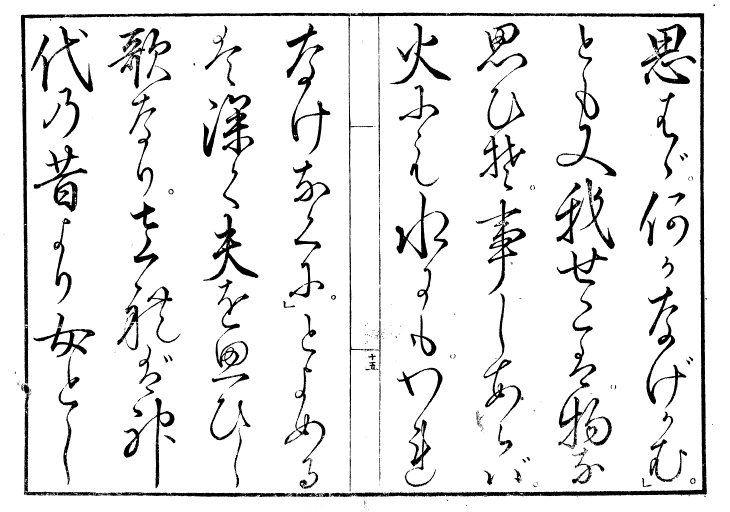 思はゞ。何かなげかむ。」
とも又我せこは。物な
思ひそ。事しあらば。
火にも水にも。われ
十五
なけなくに。」とよめる
は深く夫を思ひし
歌なり。されば神
代の昔より女とし